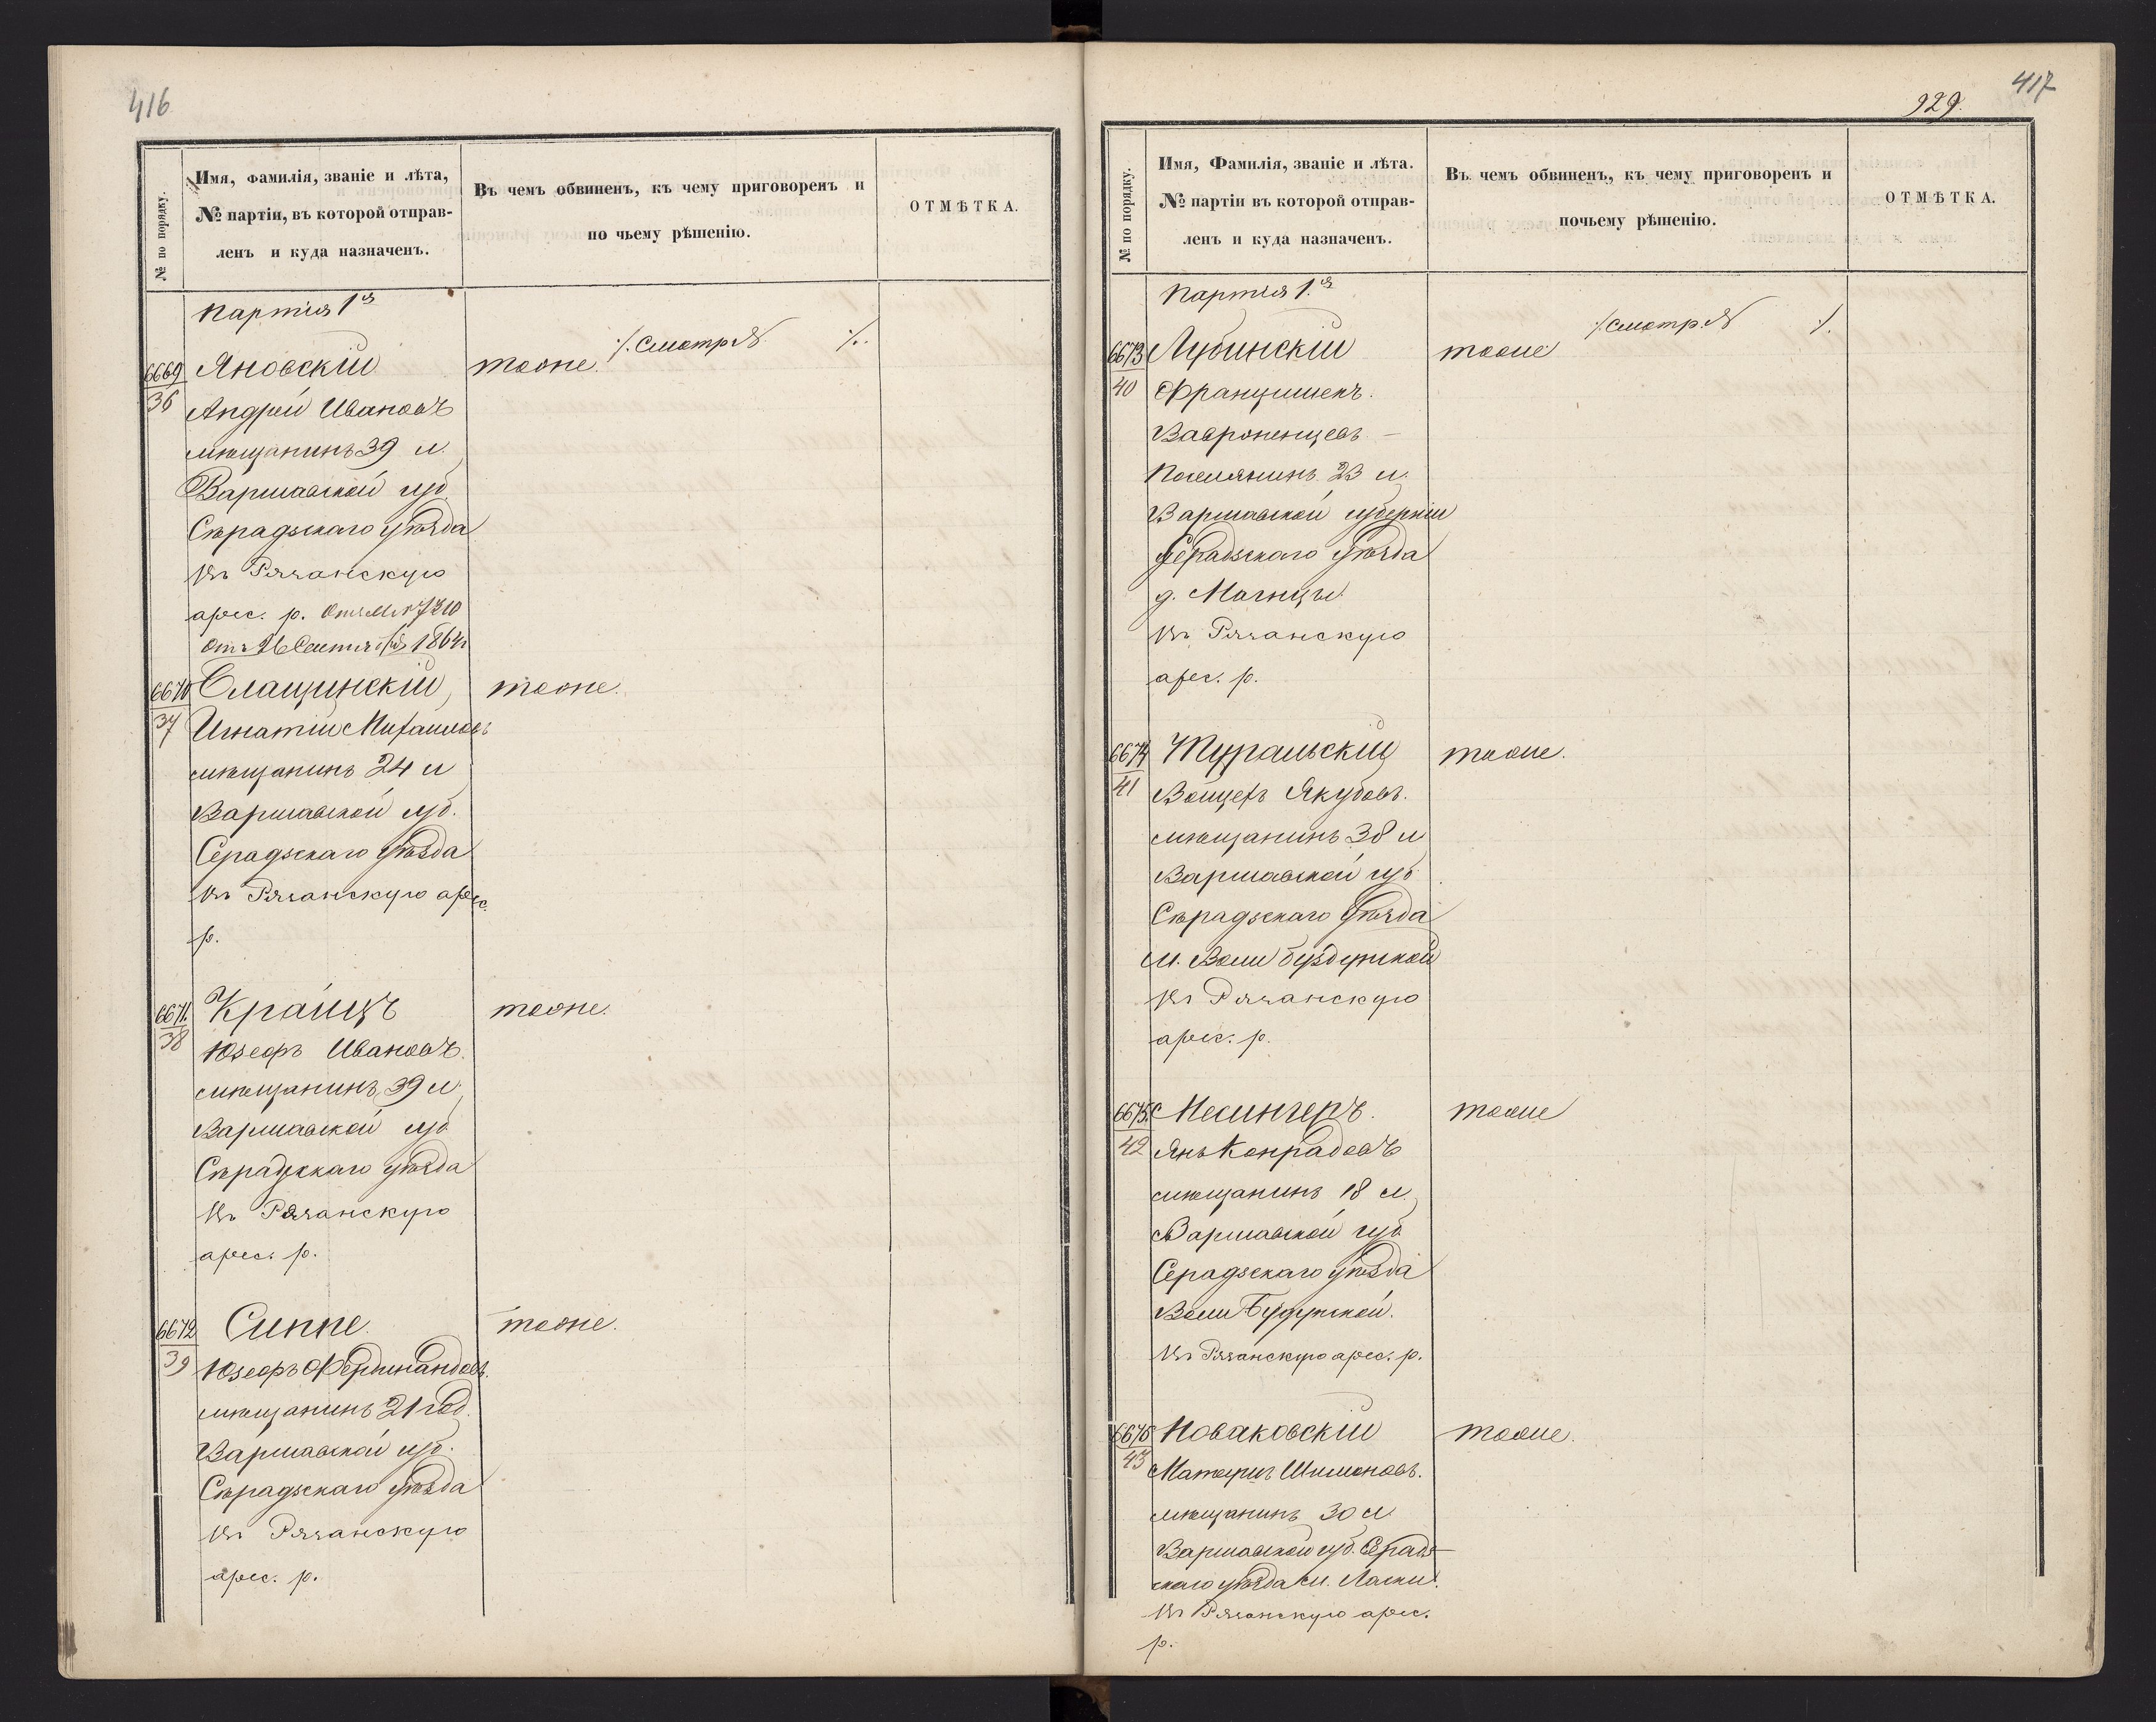 416
№ по порядку.
Имя, Фамилія, званіе и лѣта,
№ партіи, въ которой отправ-
ленъ и куда назначенъ.
Въ чемъ обвиненъ, къ чему приговоренъ и
по чьему рѣшенію.
ОТМѢТКА.
Партія 1я
/. Смотр. № /.
6669
36
Яновскій
тоже.
Андрей Ивановъ
мѣщанинъ 39 л.
Варшавской губ.
Сѣрадзскаго уѣзда
въ Рязанскую
арес. р. Отн. № 7310
отъ 26 Сентября 1864 г
6670
37
Слащинскій,
тоже.
Игнатій Михайловъ
мѣщанинъ 24 л
Варшавской губ.
Серадзскаго уѣзда
въ Рязанскую арес.
р.
6671.
38
Крайцъ
тоже.
Юзефъ Ивановъ.
мѣщанинъ, 39 л.
Варшавской губ
Сѣрадзскаго уѣзда
въ Рязанскую
арес. р.
6672
39
Сиппе.
тоже.
Юзефъ Фердинандовъ.
мѣщанинъ 21 год.
Варшавской губ.
Сѣрадзскаго уѣзда
въ Рязанскую
арес. р.
417
929.
№ по порядку.
Имя, Фамилія, званіе и лѣта.
№ партіи въ которой отправ-
ленъ и куда назначенъ.
Въ чемъ обвиненъ, къ чему приговоренъ и
почьему рѣшенію.
ОТМѢТКА.
Партія 1.я
/. смотр. № /.
6673
40
Лубинскій
тоже
Францишекъ.
Вавроненцевъ –
Поселянинъ 23 л.
Варшавской губерніи
Серадзскаго уѣзда
д.
въ Рязанскую
арес. р.
6674
41
Туральскій
тоже.
Войцехъ Якубовъ.
мѣщанинъ 38 л
Варшавской губ
Сѣрадзскаго уѣзда
м. Воли
въ Рязанскую
арес. р.
6675.
42
Месингеръ.
тоже
Янъ Конрадовъ
мѣщанинъ 18 л.
Варшавской губ
Серадзскаго уѣзда
Воли
въ Рязанскую арес. р.
6676
43
Новаковскій
тоже.
Матеушъ Шимоновъ.
мѣщанинъ 30 л.
Варшавской губ. Серадз-
скаго уѣзда м. Ласки.
въ Рязанскую арес.
р.